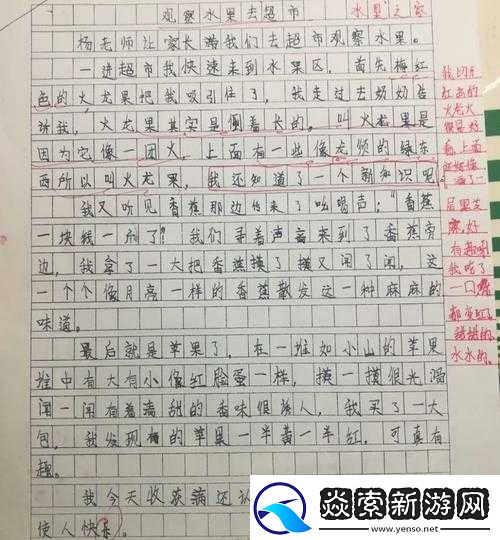 观察水果去超市
水果之家
杨老师让家长带我们去超市观察水果。
一进超市我快速来到水果区，首先梅红
色的火龙果把我吸引住了，我走过去奶奶告
诉我，火龙果其实是倒着长的。叫火龙果是
因为它像一团火，上面有一些像龙须的绿东
西所以叫火龙果，我还知道了一个新知识呢。
我又听见香蕉那边传来了吆喝声："香蕉
一块钱一斤了！我们寻着声音来到了香蕉旁
边，我拿了一大把香蕉摸了摸又闻了闻，这
一个个像月亮一样的香蕉散发这一种麻麻的
味道。
最后就是苹果了，在一堆如小山的苹果
堆中有大有小像红脸蛋一样，摸一摸很光滑
闻一闻有着满甜的香味很诱人，我买了一大
包，我发现有的苹果一半黄一半红，可真有
趣。
我今天收获满还认
使人快乐。
我切开
红色的
火龙果
上面
有趣啊
我吃了
一口嘴
都变红了
甜甜的
水水的。
焱索新游网
www.yenso.net